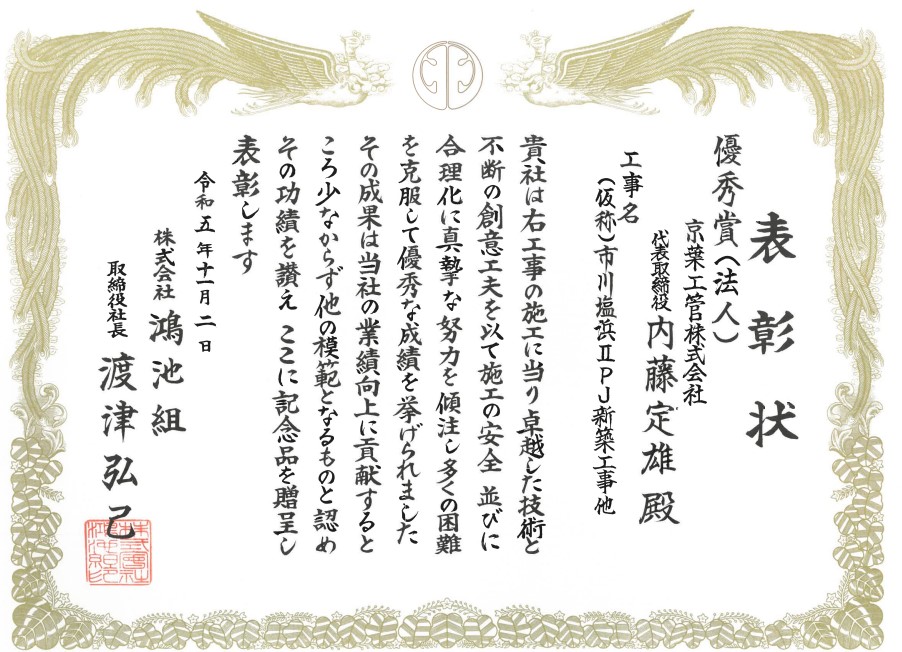 表彰状
優秀賞(法人)
京葉工管株式会社
代表取締役 内藤定雄 殿
工事名
(仮称)市川塩浜ⅡPJ新築工事他
貴社は右工事の施工に当り卓越した技術と
不断の創意工夫を以て施工の安全 並びに
合理化に真摯な努力を傾注し多くの困難
を克服して優秀な成績を挙げられました
その成果は当社の業績向上に貢献すると
ころ少なからず他の模範となるものと認め
その功績を讃え ここに記念品を贈呈し
表彰します
令和五年十一月二日
株式会社 鴻池組
取締役社長 渡津弘己